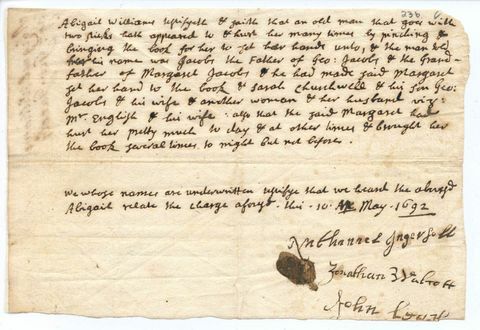 236
Abigail Williams testifyeth & saith that an old man that goes with
two sticks hath appeared to & hurt her many times by pinching &
bringing the book for her to set her hand unto, & the man told
her his name was Jacobs the Father of Geo: Jacobs & the Grand-
father of Margaret Jacobs & he had made said Margaret
set her hand to the book & Sarah Churchwell & his son Geo:
Jacobs & his wife & another woman & her husband viz:
Mr. English & his wife: also that the said Margaret had
hurt her pretty much to day & at other times & brought her
the book several times to night but not before.
we whose names are underwritten testifye that we heard the abovsd
Abigail relate the charge aforsd. this 10 May. 1692
Nathanell Ingersoll
Jonathan Walcott
John